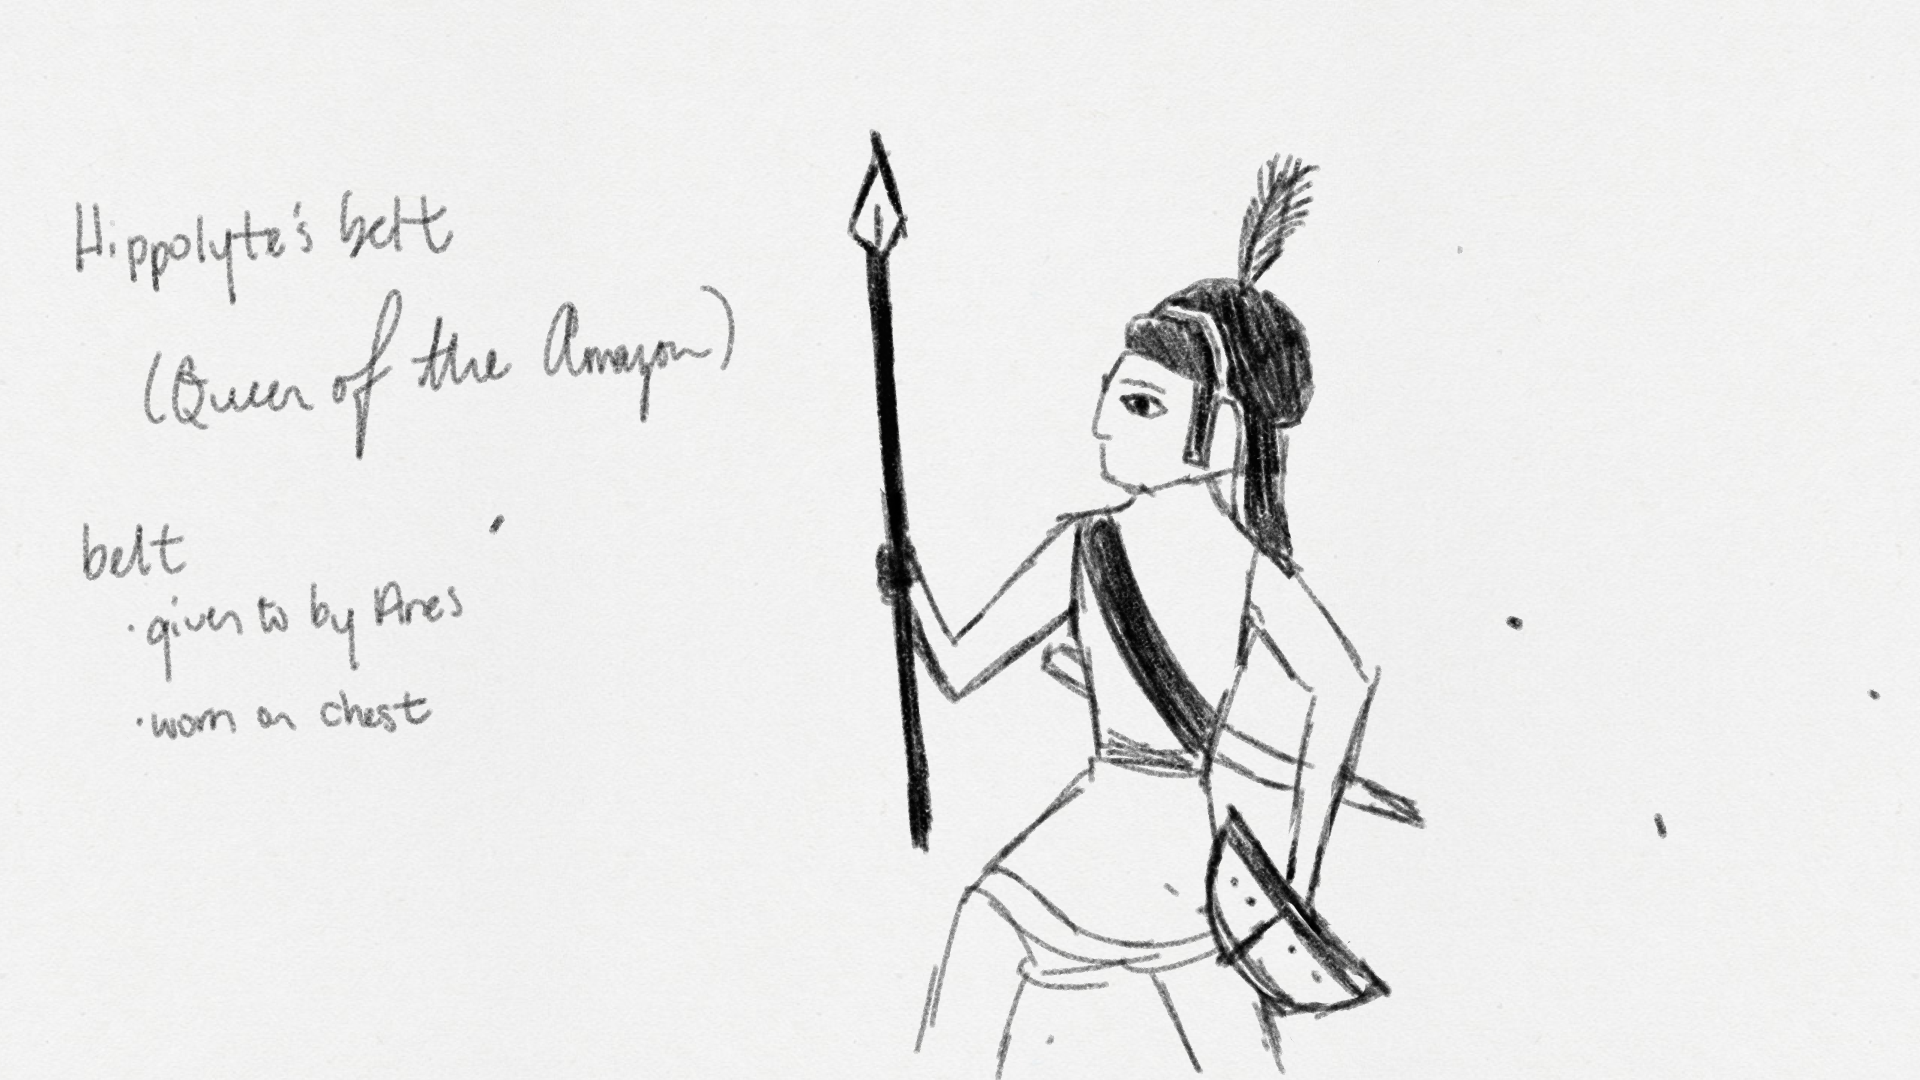 Hippolyte's belt
(Queen of the Amazon)
belt
· given to by Ares
· worn on chest